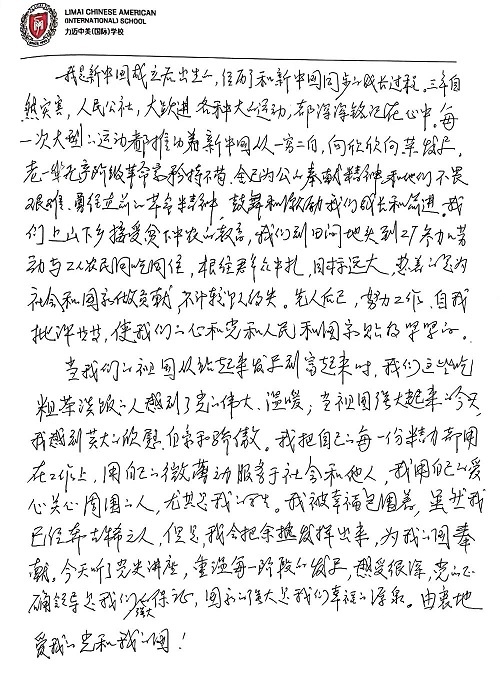 LIMAI CHINESE AMERICAN
(INTERNATIONAL) SCHOOL
力迈中美(国际)学校
我是新中国成立后出生人,经历了和新中国同步的成长过程,三年自
然灾害,人民公社,大跃进各种大的运动,都深深铭记在心中。每
一次大型的运动都推动着新中国从一穷二白,向欣欣向荣发展,
老一辈无产阶级革命高矜持不惜、全心为公的奉献精神和他们不畏
艰难、勇往直前的革命精神,鼓舞和激励我们成长和前进。我
们上山下乡接受贫下中农的教育,我们到田间地头到工厂参加劳
动与工人农民同吃同住,根往群众中扎,目标远大,想着的是为
社会和国家做贡献,不计较个人得失。先人后己,努力工作、自我
批评,使我们的心和党和人民和国家贴得牢牢的。
当我们的祖国从站起来发展到富起来时,我们这些吃
粗茶淡饭的人感到了党的伟大、温暖;当祖国强大起来的今天,
我感到莫大的欣慰、自豪和骄傲。我把自己的每一份精力都用
在工作上,用自己的微薄力服务于社会和他人,我用自己的爱
心关心周围的人,尤其是我的学生。我被幸福包围着,虽然我
已经年古稀之人,但是我会把余热发挥出来,为我的国奉
献。今天听了党史讲座,重温每一阶段的发展,感受很深,党的正
确领导是我们强大保证,国家的强大是我们幸福的源泉。由衷地
爱我的党和我的国!